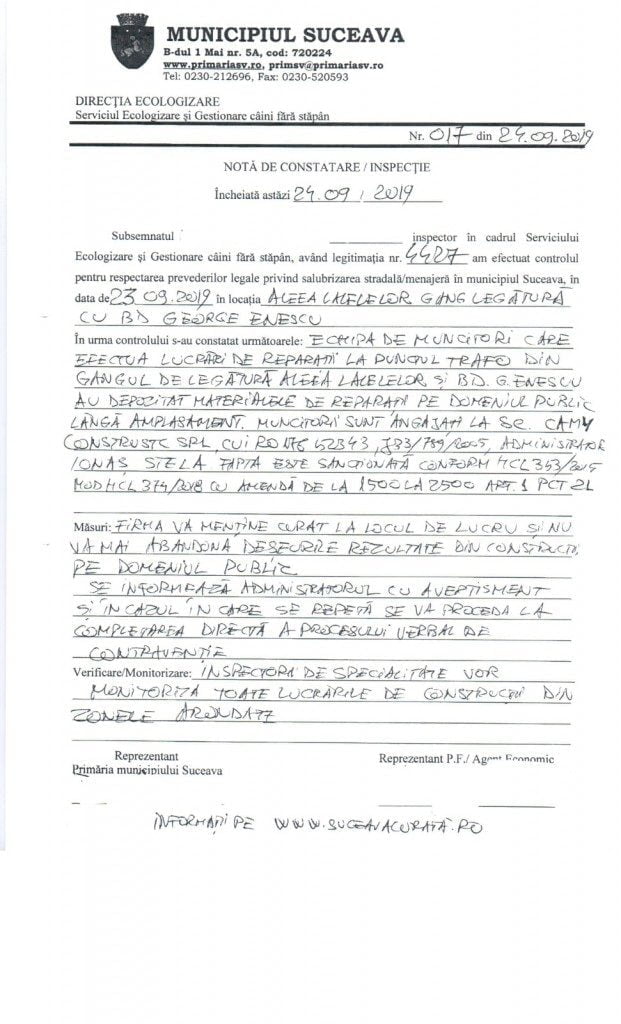 MUNICIPIUL SUCEAVA
B-dul 1 Mai nr. 5A, cod: 720224
www.primariasv.ro, primsv@primariasv.ro
Tel: 0230-212696, Fax: 0230-520593
DIRECȚIA ECOLOGIZARE
Serviciul Ecologizare și Gestionare câini fără stăpân
Nr. 017 din 24.09.2019
NOTĂ DE CONSTATARE / INSPECȚIE
Încheiată astăzi 24.09 / 2019
Subsemnatul inspector în cadrul Serviciului
Ecologizare și Gestionare câini fără stăpân, având legitimația nr. 4427 am efectuat controlul
pentru respectarea prevederilor legale privind salubrizarea stradală/menajeră în municipiul Suceava, în
data de 23 09.2019 în locația ALEEA LALELELOR GANG LEGĂTURĂ
CU BD GEORGE ENESCU
În urma controlului s-au constatat următoarele: ECHIPA DE MUNCITORI CARE
EFECTUA LUCRĂRI DE REPARAȚII LA PUNCTUL TRAFO DIN
GANGUL DE LEGĂTURĂ ALEEA LALELELOR ȘI BD. G. ENESCU
AU DEPOZITAT MATERIALELE DE REPARAȚII PE DOMENIUL PUBLIC
LÂNGĂ AMPLASAMENT. MUNCITORII SUNT ANGAJAȚI LA SC. CAMY
CONSTRUSTC SRL, CUI RO, ADMINISTRATOR
IONAȘ STELA. FAPTA ESTE SANCȚIONATĂ CONFORM HCL 353/2015
MOD HCL 374/2018 CU AMENDĂ DE LA 1500 LA 2500 ART. 1 PCT 2L
Măsuri: FIRMA VA MENȚINE CURAT LA LOCUL DE LUCRU ȘI NU
VA MAI ABANDONA DEȘEURILE REZULTATE DIN CONSTRUCȚII
PE DOMENIUL PUBLIC
SE INFORMEAZĂ ADMINISTRATORUL CU AVERTISMENT
ȘI ÎN CAZUL ÎN CARE SE REPETĂ SE VA PROCEDA LA
COMPLETAREA DIRECTĂ A PROCESULUI VERBAL DE
CONTRAVENȚIE
Verificare/Monitorizare: INSPECTORII DE SPECIALITATE VOR
MONITORIZA TOATE LUCRĂRILE DE CONSTRUCȚII DIN
ZONELE ARONDATE
Reprezentant
Primăria municipiului Suceava
Reprezentant P.F./ Agent Economic
INFORMAȚII PE WWW.SUCEAVACURATĂ.RO